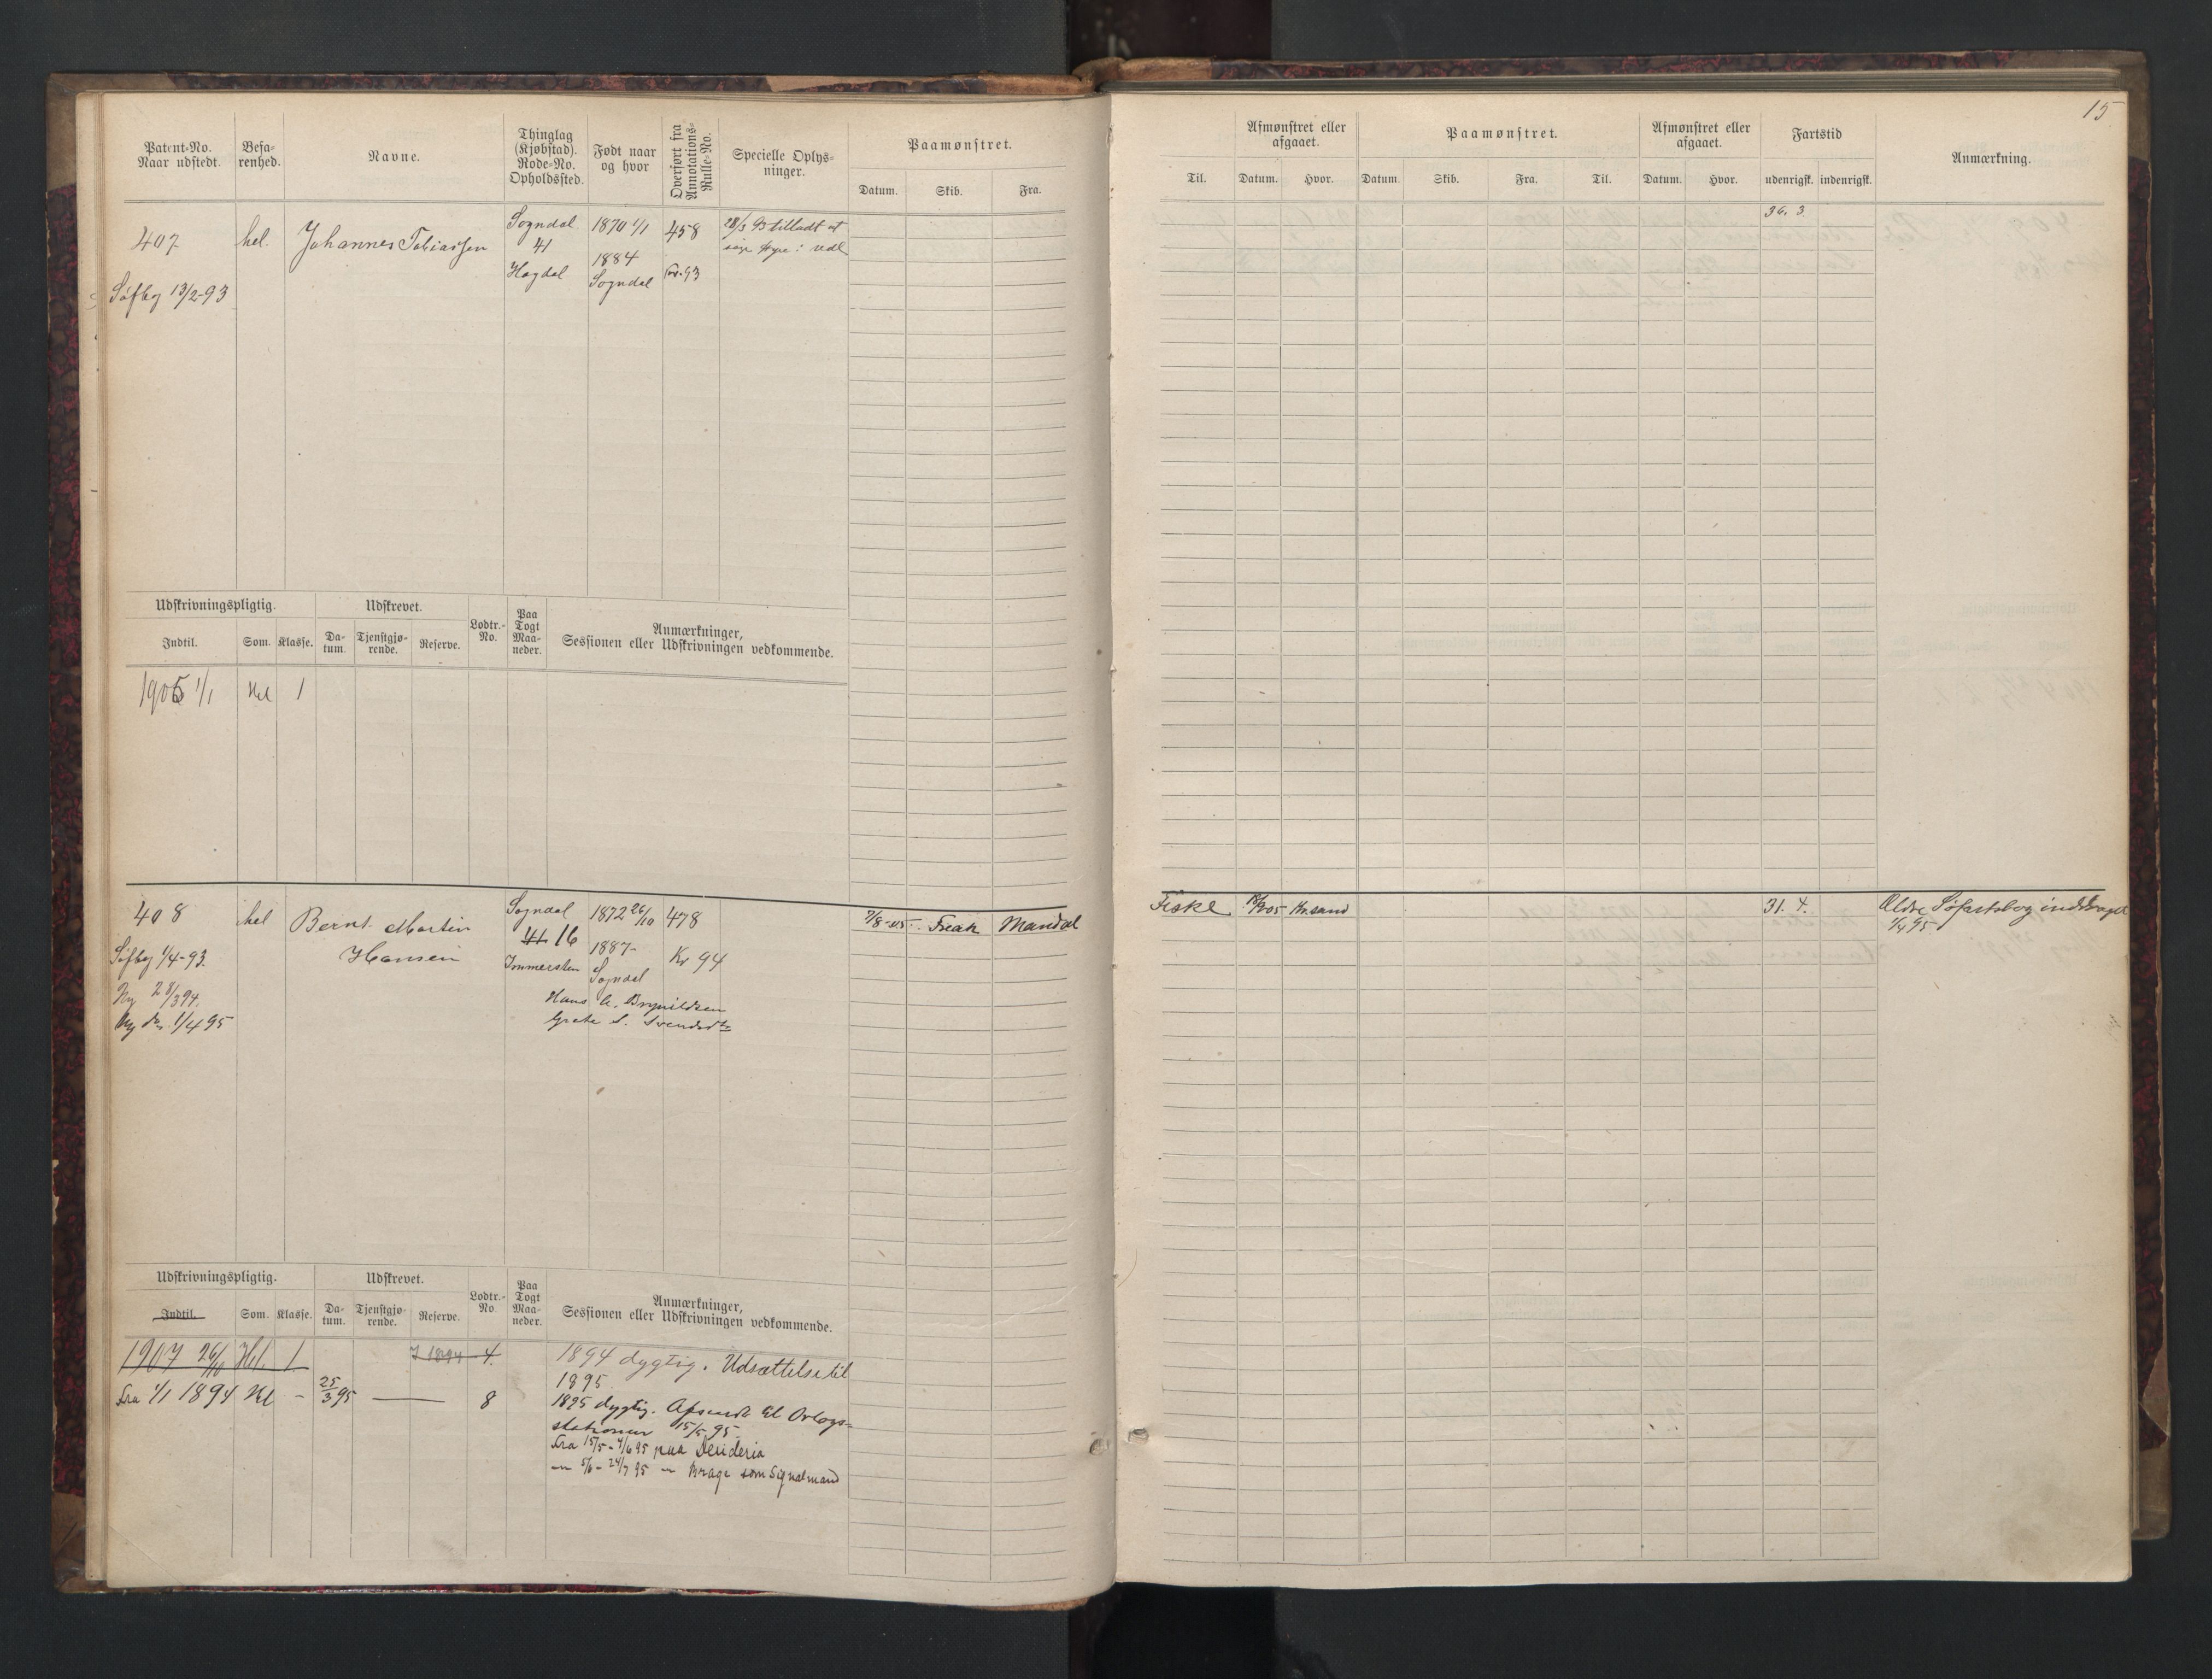 15
Patent-No.
Naar udstedt.
Befa-
renhed.
Navne.
Thinglag
(Kjøbstad).
Rode-No.
Opholdssted.
Født naar
og hvor
Overført fra
Annotations-
Rulle-No.
Specielle Oplys-
ninger.
Paamønstret.
Datum. Skib. Fra.
Til.
Afmønstret eller
afgaaet.
Datum. Hvor.
Paamønstret.
Datum. Skib. Fra. Til.
Afmønstret eller
afgaaet.
Datum. Hvor.
Fartstid
udenrigsk. indenrigsk.
Anmærkning.
407
Søfbg 13/2-93
hel.
Johannes Tobiassen
Sogndal
41
Hagdal
1870 1/1
1884
Sogndal
458
93
28/3 93 tilladt at
søge Hyre i udl
36. 3.
Udskrivningspligtig.
Indtil. Som. Klasse.
Udskrevet.
Da-
tum.
Tjenstgjø-
rende.
Reserve.
Lodtr.-
No.
Paa
Togt
Maa-
neder.
Anmærkninger,
Sessionen eller Udskrivningen vedkommende.
1905 1/1 Hel 1
408
Søfbg 1/4-93.
Ny 28/3 94.
Ny do. 1/4 95
hel
Bernt Martin
Hansen
Sogndal
41 16
1872 26/10
1887-
Sogndal
Hans A. Brynildsen
Grete S. Svendsdtr
478
Kr 94
7/8-05 Freak Mandal
Fiske 05 Kr.sand
31. 4.
Ældre Søfartsbog inddraget
1/4 95
Udskrivningspligtig.
Indtil. Som. Klasse.
Udskrevet.
Da-
tum.
Tjenstgjø-
rende.
Reserve.
Lodtr.-
No
Paa
Togt
Maa-
neder.
Anmærkninger,
Sessionen eller Udskrivningen vedkommende.
1907 26/10 Hel. 1 1894 4.
fra 1/1 1894 Hel - 25/3 95 — 8
1894 dygtig. Udsættelse til
1895
1895 dygtig. Afsendt til Orlogs-
stationen 15/5 95.
fra 15/5 - 4/6 95 paa Desideria
— 5/6 - 24/7 95 — Brage som Signalmand